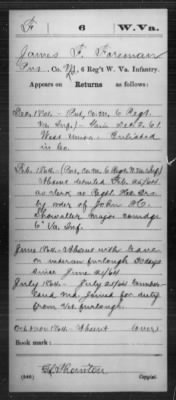 F 6 W.Va.
James F. Foreman
Pvt, Co. M, 6 Reg't W. Va. Infantry.
Appears on Returns as follows:
Dec 1864 - Pvt, Co. M 6 Regt.
Va Inf. - Gain Dec 2. 61
West Union - Enlisted
in Co.
Feb. 1864 - (Pvt, Co M 6 Regt W Va Inf)
Absent detailed Feb. 20/64
as clerk at Regtl Hd. Qrs.
by order of John H.
Showalter Major comdg.
6" Va. Inf.
June 1864 - Absent with leave
on veteran furlough 30 days
since June 21/64
July 1864 - July 21/64
land Md. joined for duty
from Vet furlough.
Oct & Nov 1864 Absent (over)
Book mark:
(546) Copyist.